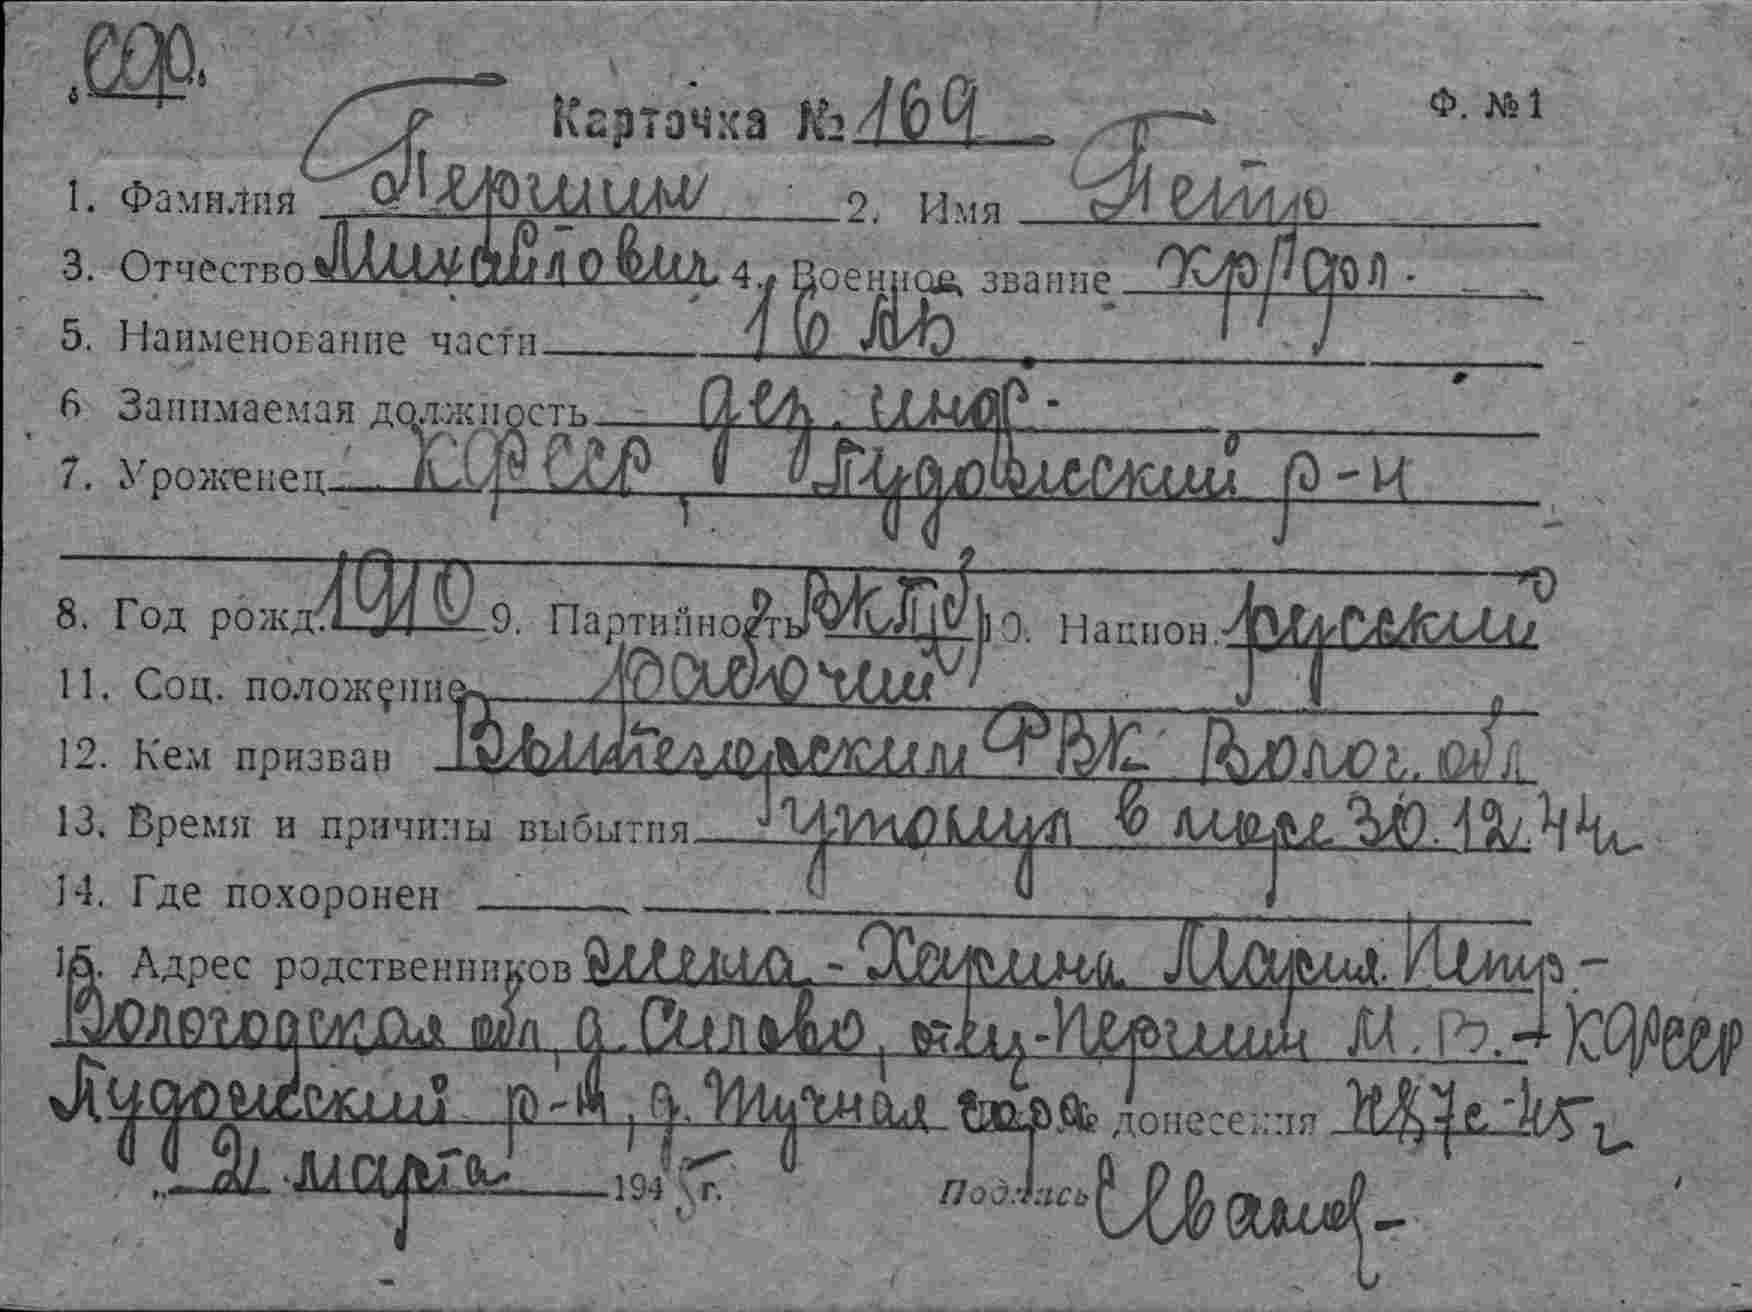 Сор.
Карточка № 169 Ф. № 1
1. Фамилия Першин 2. Имя Петр
3. Отчество Михайлович 4. Военное звание кр/дол.
5. Наименование части 16
6 Занимаемая должность
7. Уроженец КФССР, Пудожский р-н
8. Год рожд. 1910 9. Партийность ВКП(б) 10. Национ. русский
11. Соц. положение рабочий
12. Кем призван Вытегорским РВК Волог. обл
13. Время и причины выбытия утонул в море 30.12.44г
14. Где похоронен
15. Адрес родственников жена - Харина Мария Петр-
Вологодская обл, д. Силово, отец - Першин М. В. - КФССР
Пудожский р-н, д. Тучная гора № донесения 45 г
„ 21 марта 1945 г. Подпись Иванов